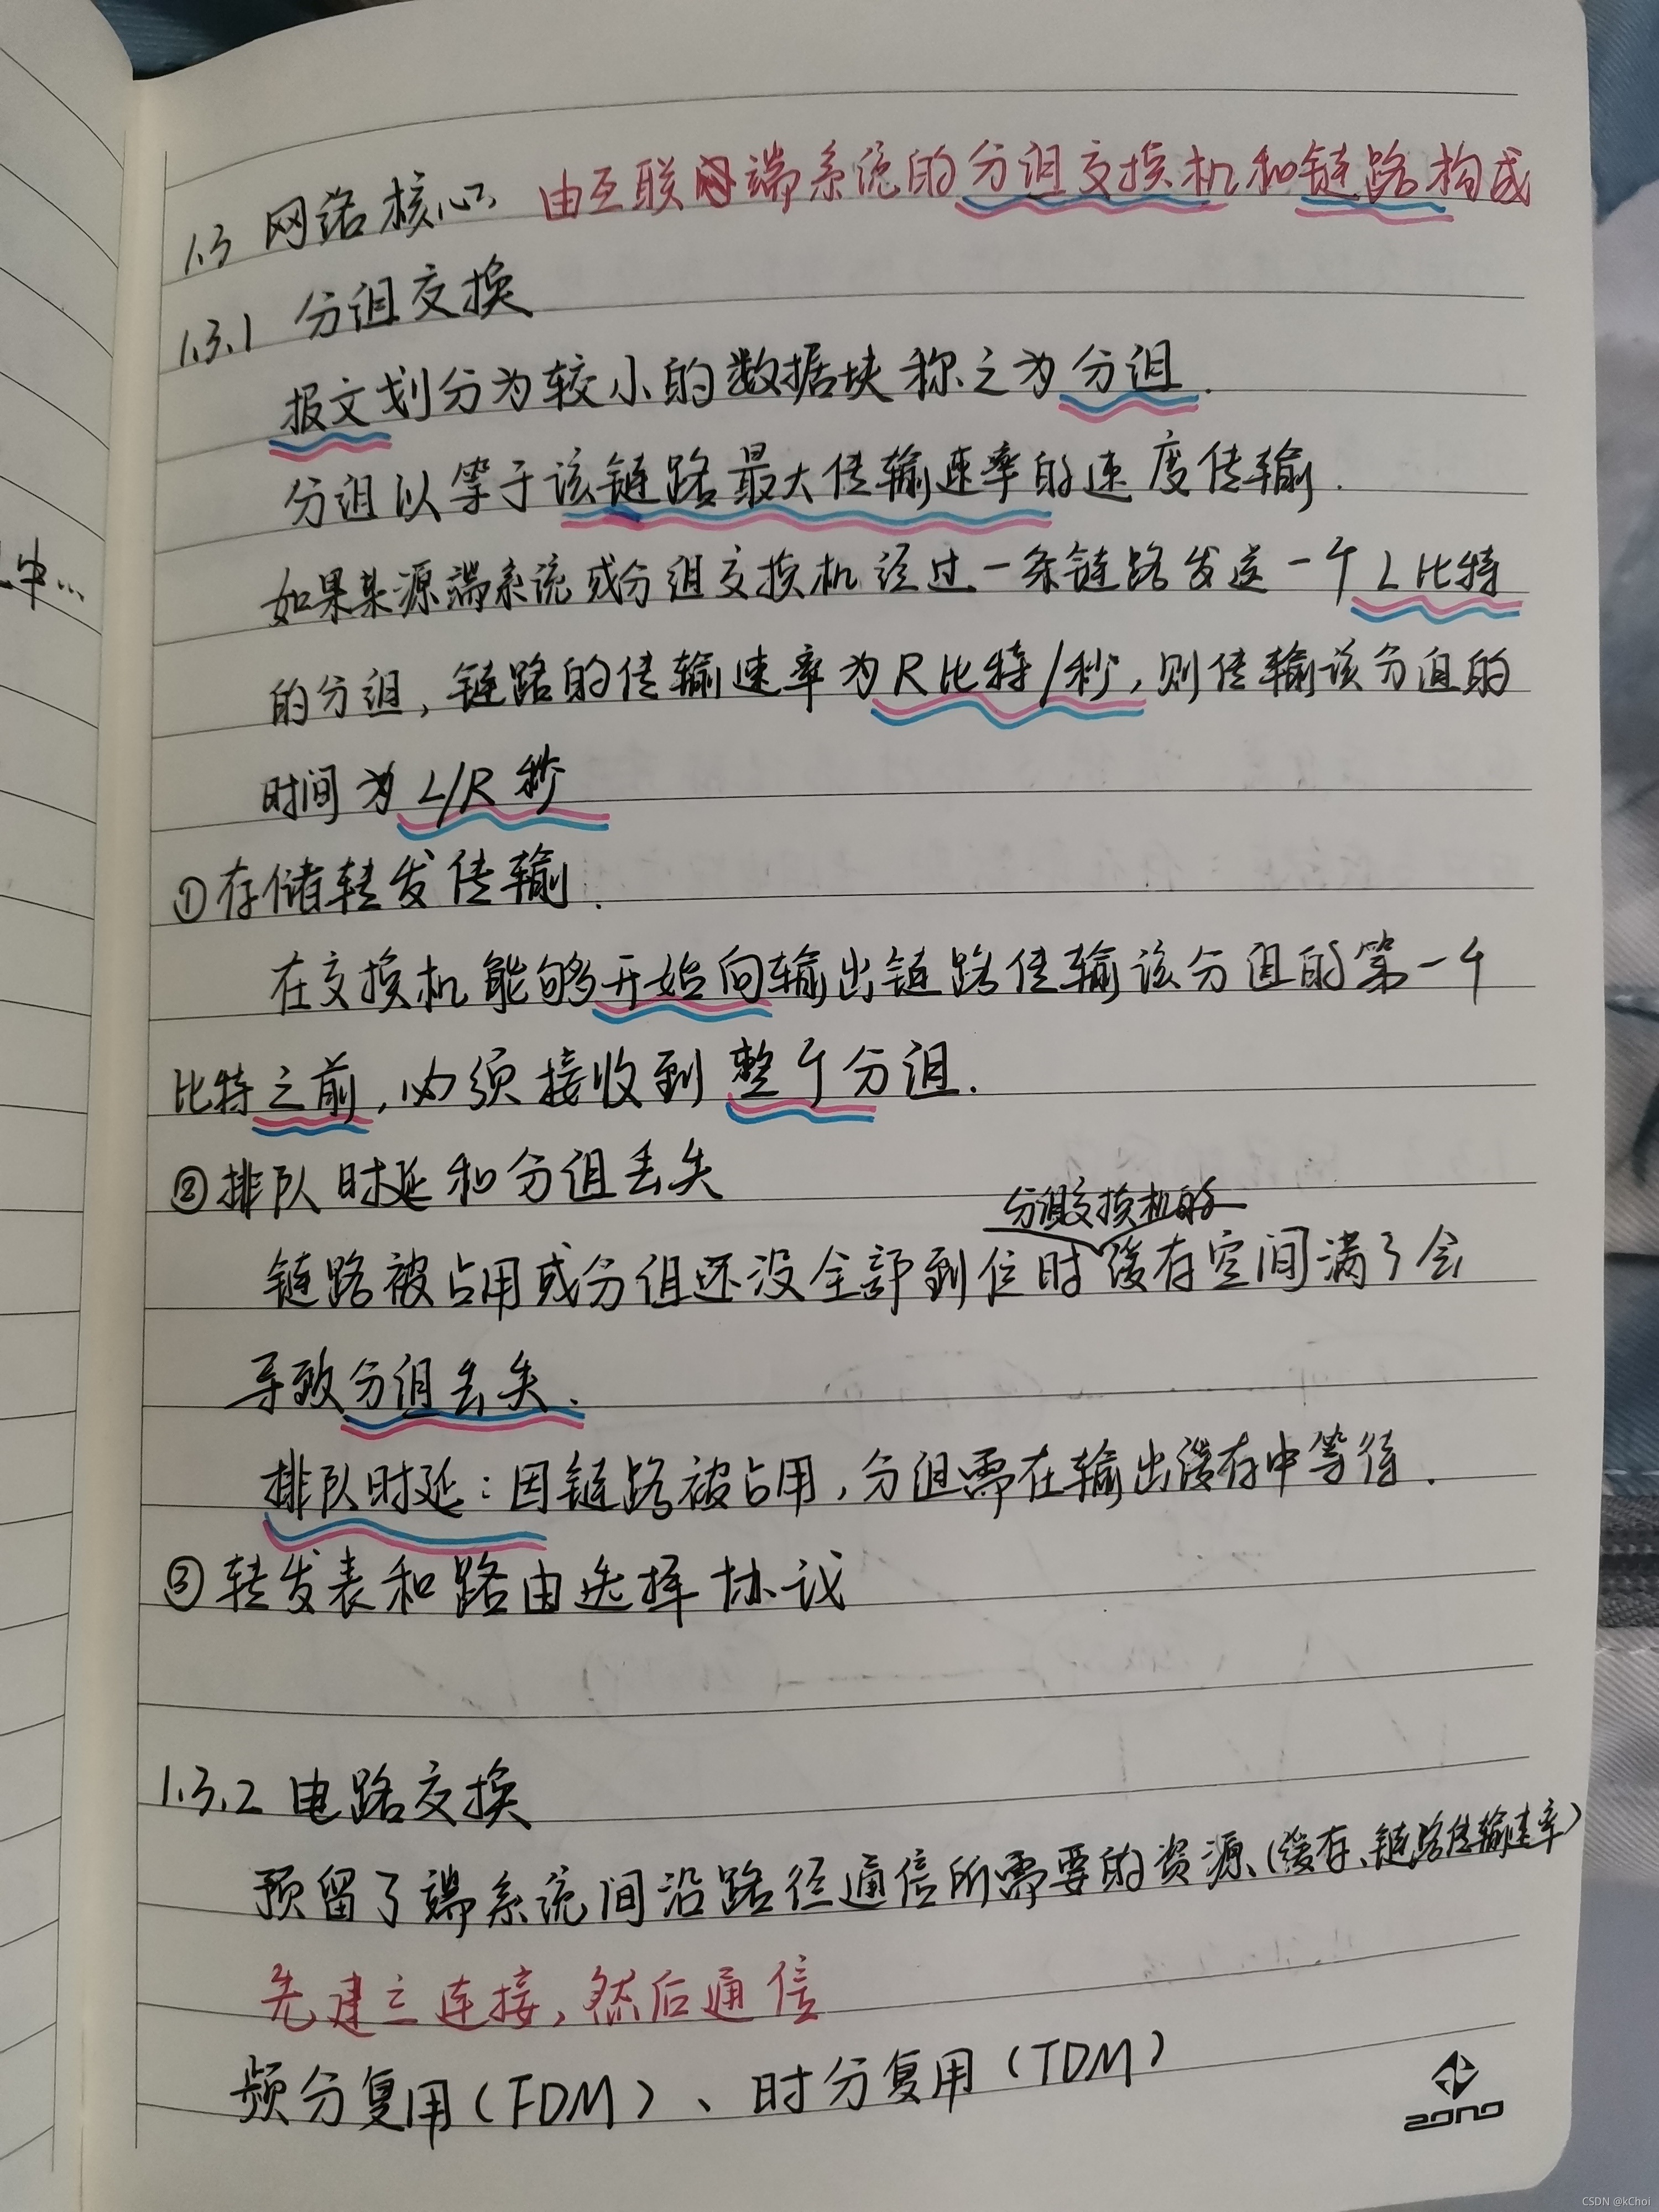 1.3 网络核心 由互联网端系统的分组交换机和链路构成
1.3.1 分组交换
报文划分为较小的数据块称之为分组.
分组以等于该链路最大传输速率的速度传输.
如果某源端系统或分组交换机经过一条链路发送一个L比特
的分组,链路的传输速率为R比特/秒,则传输该分组的
时间为L/R秒
①存储转发传输.
在交换机能够开始向输出链路传输该分组的第一个
比特之前,必须接收到整个分组.
②排队时延和分组丢失
分组交换机的
链路被占用或分组还没全部到位时缓存空间满了会
导致分组丢失.
排队时延:因链路被占用,分组需在输出缓存中等待.
③转发表和路由选择协议
1.3.2 电路交换
预留了端系统间沿路径通信所需要的资源、(缓存、链路传输速率)
先建立连接,然后通信
频分复用(FDM)、时分复用(TDM)
中...
ZONO
CSDN @kChoi